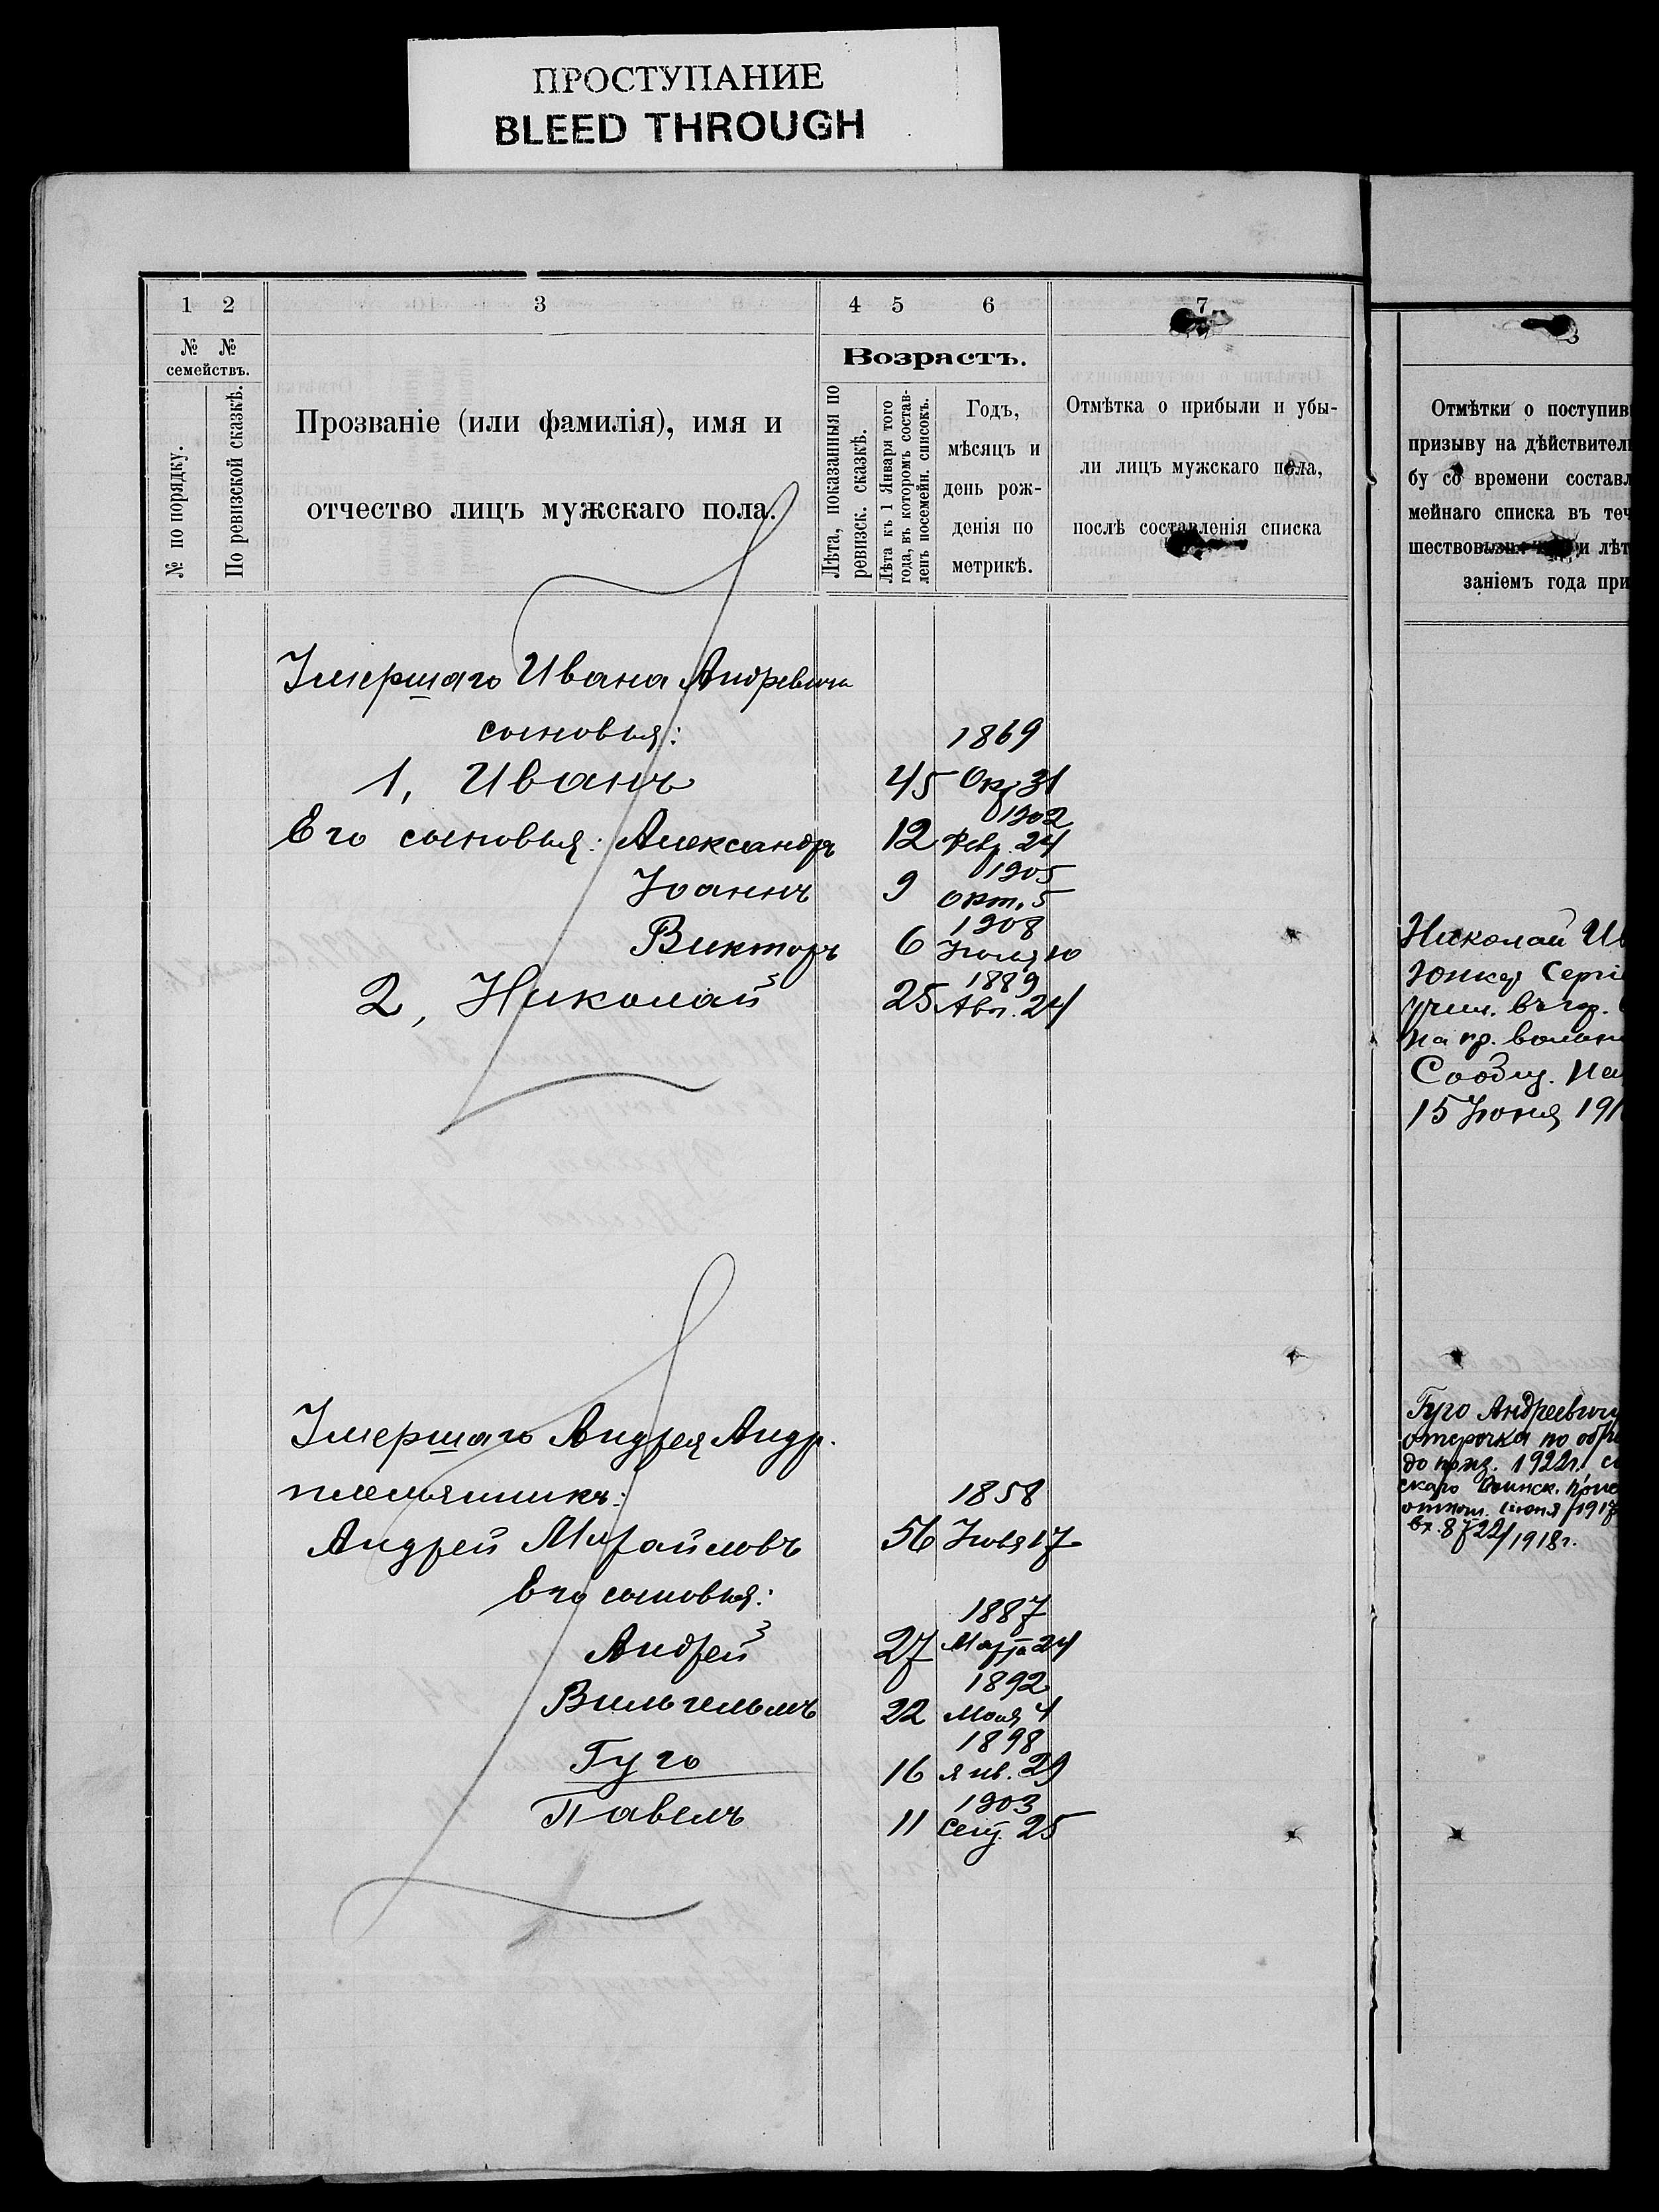 ПРОСТУПАНИЕ
BLEED THROUGH
1 2 3 4 5 6 7
№ №
семействъ.
№ по порядку.
По ревизской сказкѣ.
Прозваніе (или фамилія), имя и
отчество лицъ мужскаго пола.
Возрастъ.
Лѣта, показанныя по
ревизск. сказкѣ.
Лѣта къ 1 Января того
года, въ которомъ состав-
ленъ посемейн. списокъ.
Годъ,
мѣсяцъ и
день рож-
денія по
метрикѣ.
Отмѣтка о прибыли и убы-
ли лицъ мужскаго пола,
послѣ составленія списка
Умершаго Ивана Андревича
сыновья: 1869
1, Иванъ 45 Окт 31
1902
Его сыновья: Александръ 12 Февр. 24
1905
Іоаннъ 9 Окт. 5
1908
Викторъ 6 Іюля 10
1889
2, Николай 25 Авг. 24
Умершаго Андрея Андр.
племянникъ: 1858
Андрей Михайловъ 56 17
Его сыновья:
1887
Андрей 27 Марта 24
1892
Вильгельмъ 22 Мая 4
1898
Гуго 16 Янв. 29
1903
Павелъ 11 Сент. 25
Отмѣтки о поступив
призыву на дѣйствител
бу со времени составл
мейнаго списка въ теч
шествов и лѣт
заніемъ года при
Николай Ив
Юнкер Сергі
учил. въ гор.
на пр. вольн
Сообщ. На
15 Іюня 191
Гуго Андреевичу
отсрочка по обр
до приз. 1922г.
скаго Воинск.
отнош. 1917
вх. 87 22/1918г.